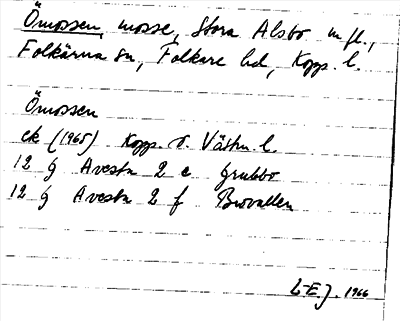 Ömossen, mosse, Stora Alsbo m fl.,
Folkärna sn, Folkare hd, Kopps. l.
Ömossen
ek (1965) Kopps. o. Västm. l.
12 G Avesta 2 e Grubbo
12 G Avesta 2 f Brovallen
L-E.J. 1966